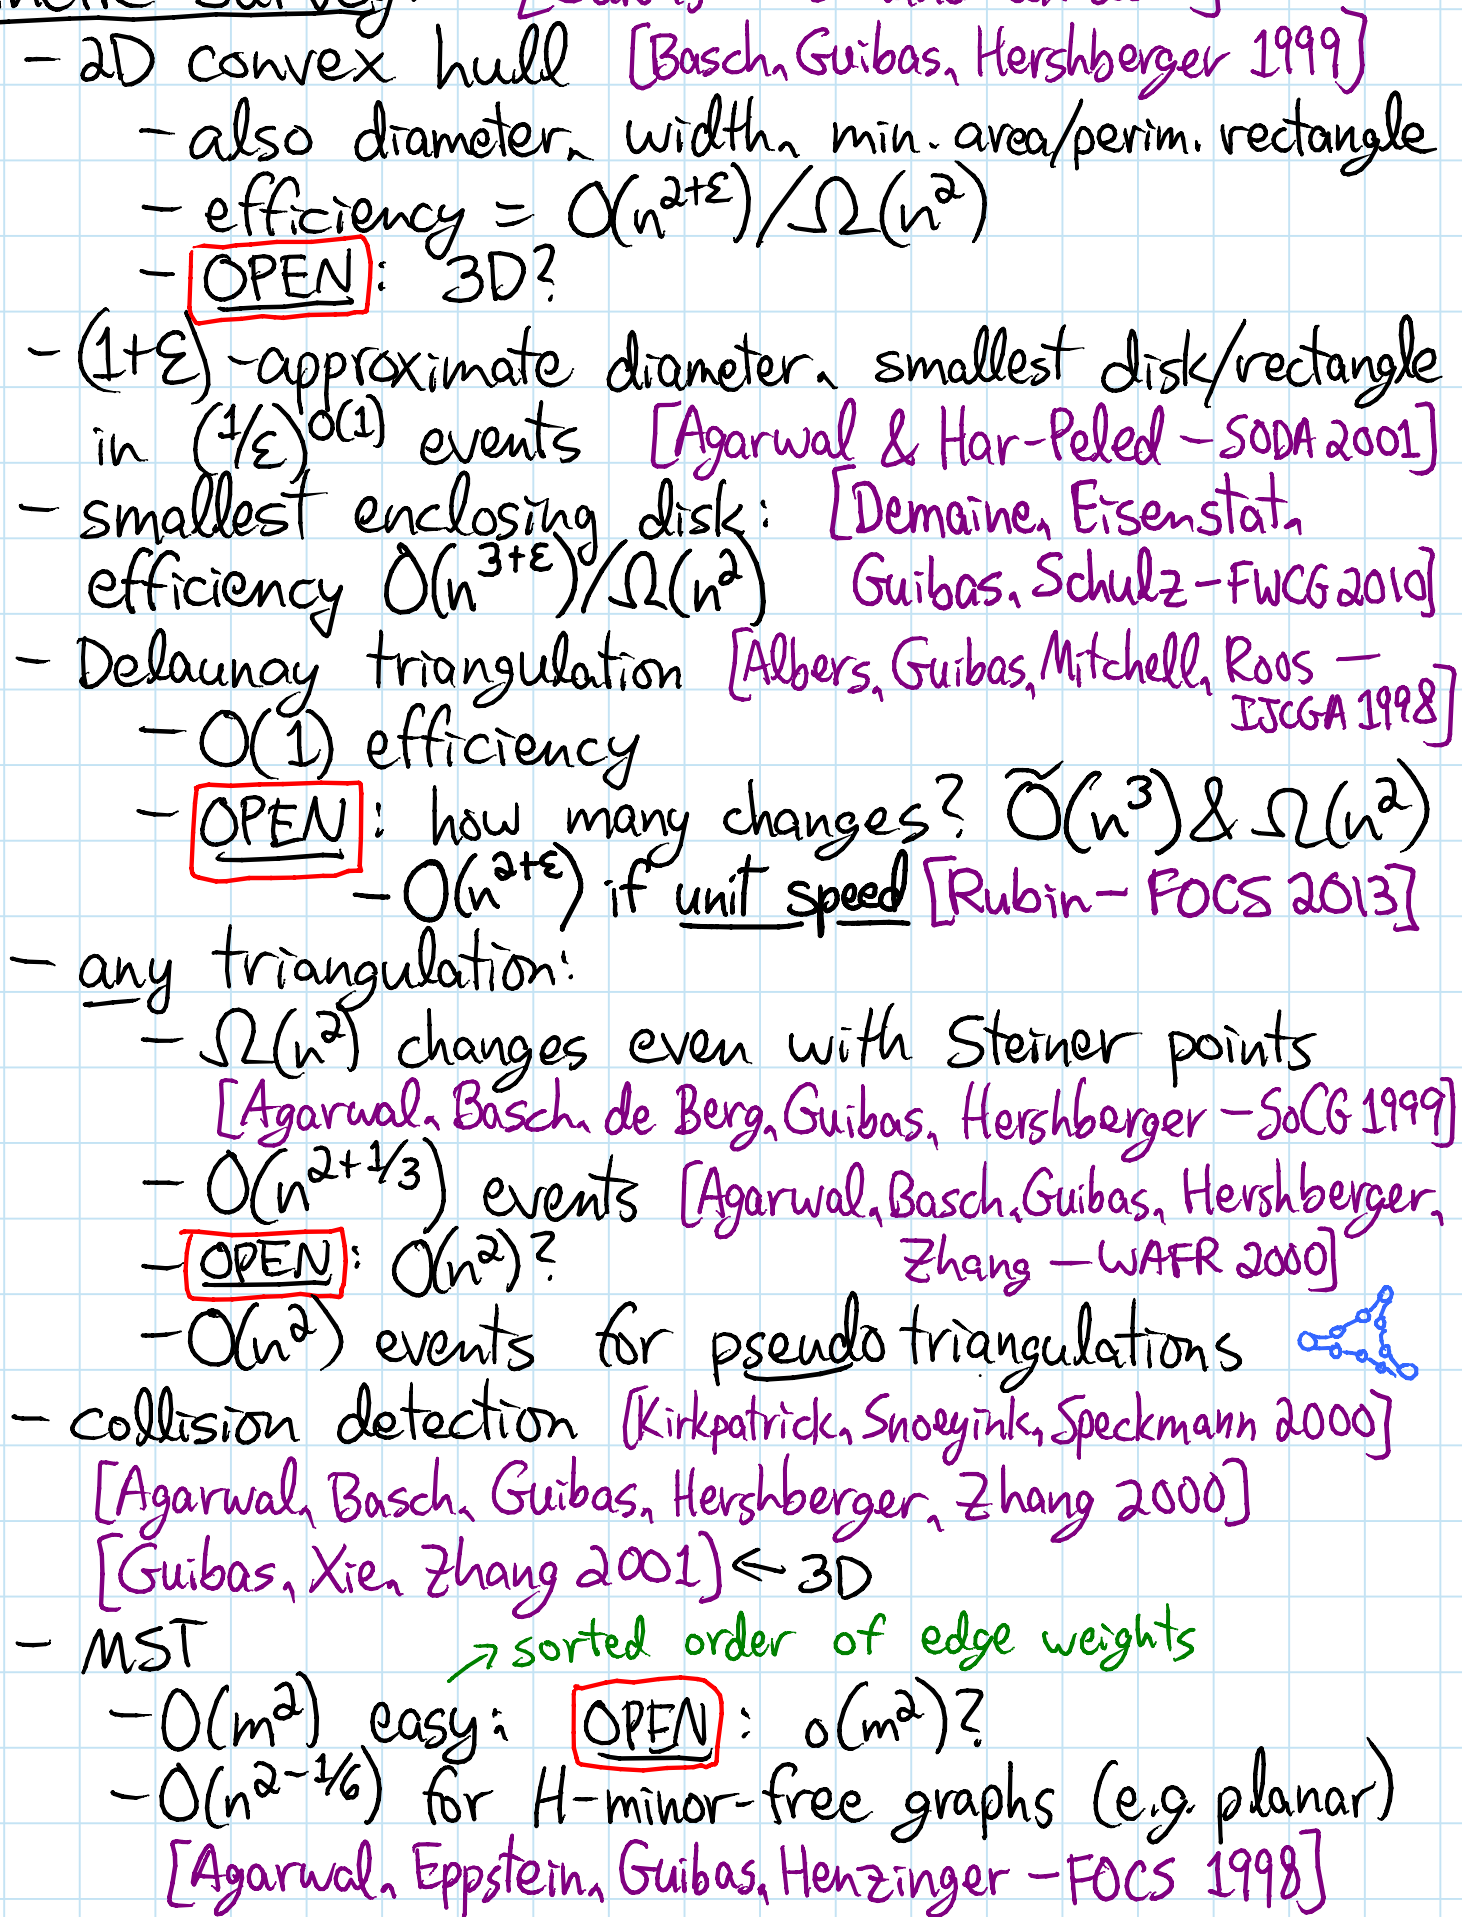 - 2D convex hull [Basch, Guibas, Hershberger 1999]
- also diameter, width, min. area/perim. rectangle
- efficiency = O(n^{2+ε})/Ω(n^2)
- OPEN: 3D?
- (1+ε)-approximate diameter, smallest disk/rectangle
in (1/ε)^{O(1)} events [Agarwal & Har-Peled - SODA 2001]
- smallest enclosing disk: [Demaine, Eisenstat,
efficiency O(n^{3+ε})/Ω(n^2) Guibas, Schulz - FWCG 2010]
- Delaunay triangulation [Albers, Guibas, Mitchell, Roos -
IJCGA 1998]
- O(1) efficiency
- OPEN: how many changes? Õ(n^3) & Ω(n^2)
- O(n^{2+ε}) if unit speed [Rubin - FOCS 2013]
- any triangulation:
- Ω(n^2) changes even with Steiner points
[Agarwal, Basch, de Berg, Guibas, Hershberger - SoCG 1999]
- O(n^{2+1/3}) events [Agarwal, Basch, Guibas, Hershberger,
Zhang - WAFR 2000]
- OPEN: O(n^2)?
- O(n^2) events for pseudotriangulations
- collision detection [Kirkpatrick, Snoeyink, Speckmann 2000]
[Agarwal, Basch, Guibas, Hershberger, Zhang 2000]
[Guibas, Xie, Zhang 2001] ← 3D
- MST → sorted order of edge weights
- O(m^2) easy; OPEN: o(m^2)?
- O(n^{2-1/6}) for H-minor-free graphs (e.g. planar)
[Agarwal, Eppstein, Guibas, Henzinger - FOCS 1998]